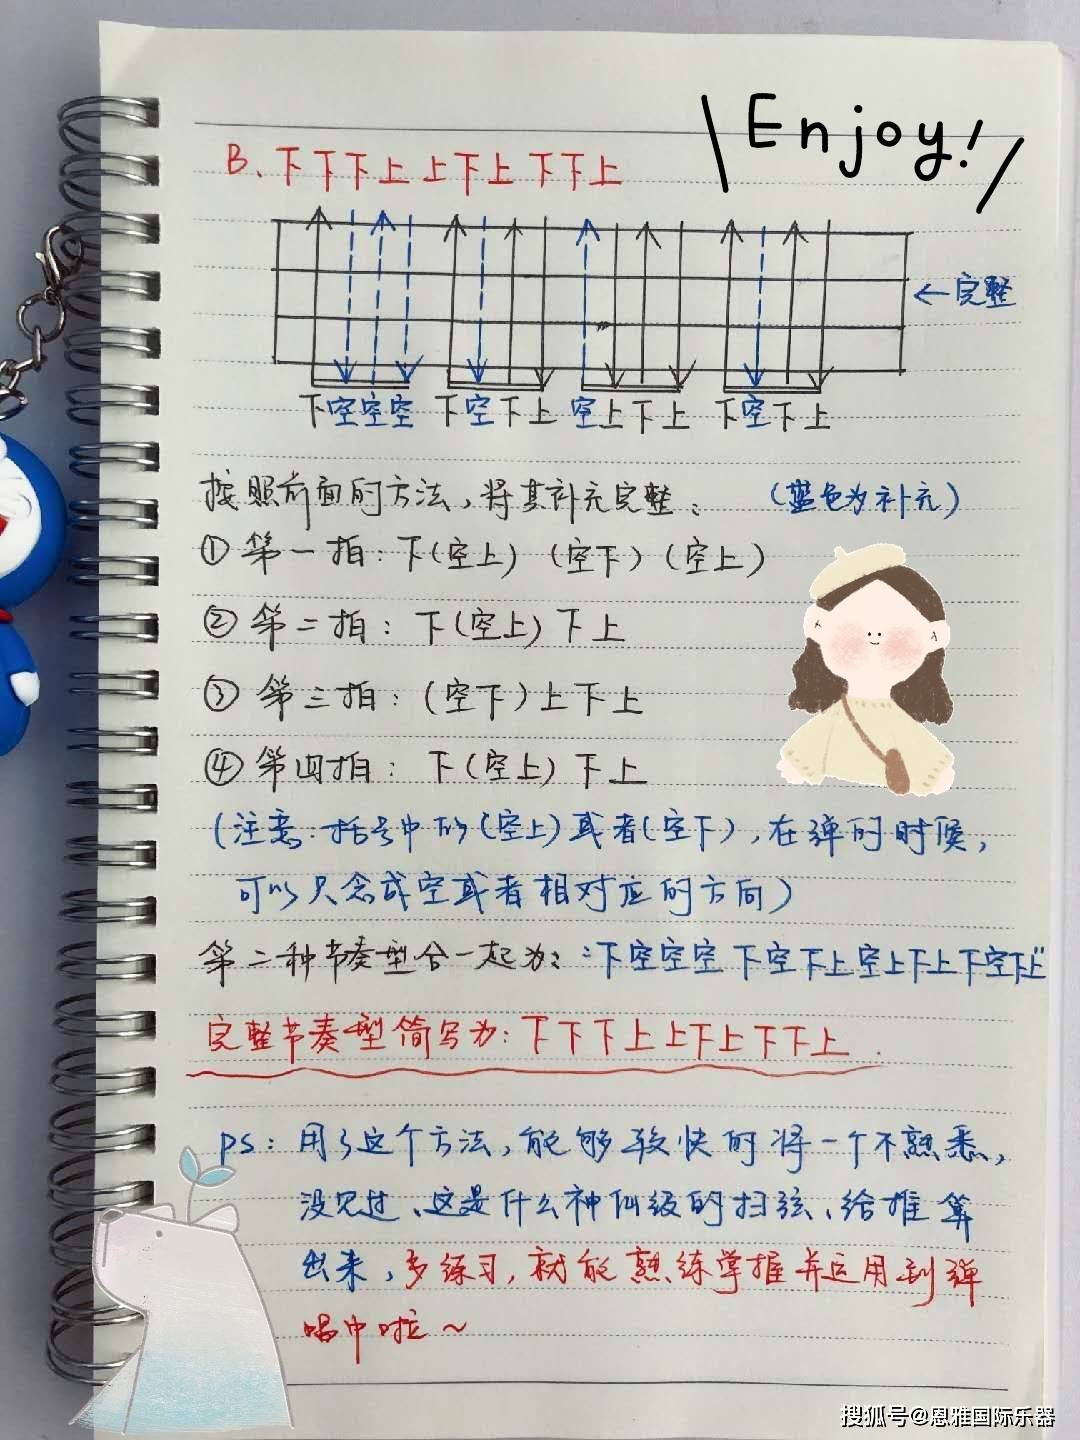 Enjoy!
B、下下下上 上下上 下下上
←完整
下空空空 下空下上 空上下上 下空下上
按照前面的方法，将其补充完整： (蓝色为补充)
① 第一拍：下(空上) (空下) (空上)
② 第二拍：下(空上)下上
③ 第三拍：(空下)上下上
④ 第四拍：下(空上)下上
(注意：括号中的(空上)或者(空下)，在弹的时候，
可以只念成空或者相对应的方向)
第二种节奏型合一起为："下空空空 下空下上 空上下上 下空下上"
完整节奏型简写为：下下下上 上下上 下下上.
ps：用了这个方法，能够较快的将一个不熟悉，
没见过、这是什么神仙级的扫弦、给推算
出来，多练习，就能熟练掌握并运用到弹
唱中啦~
搜狐号@恩雅国际乐器